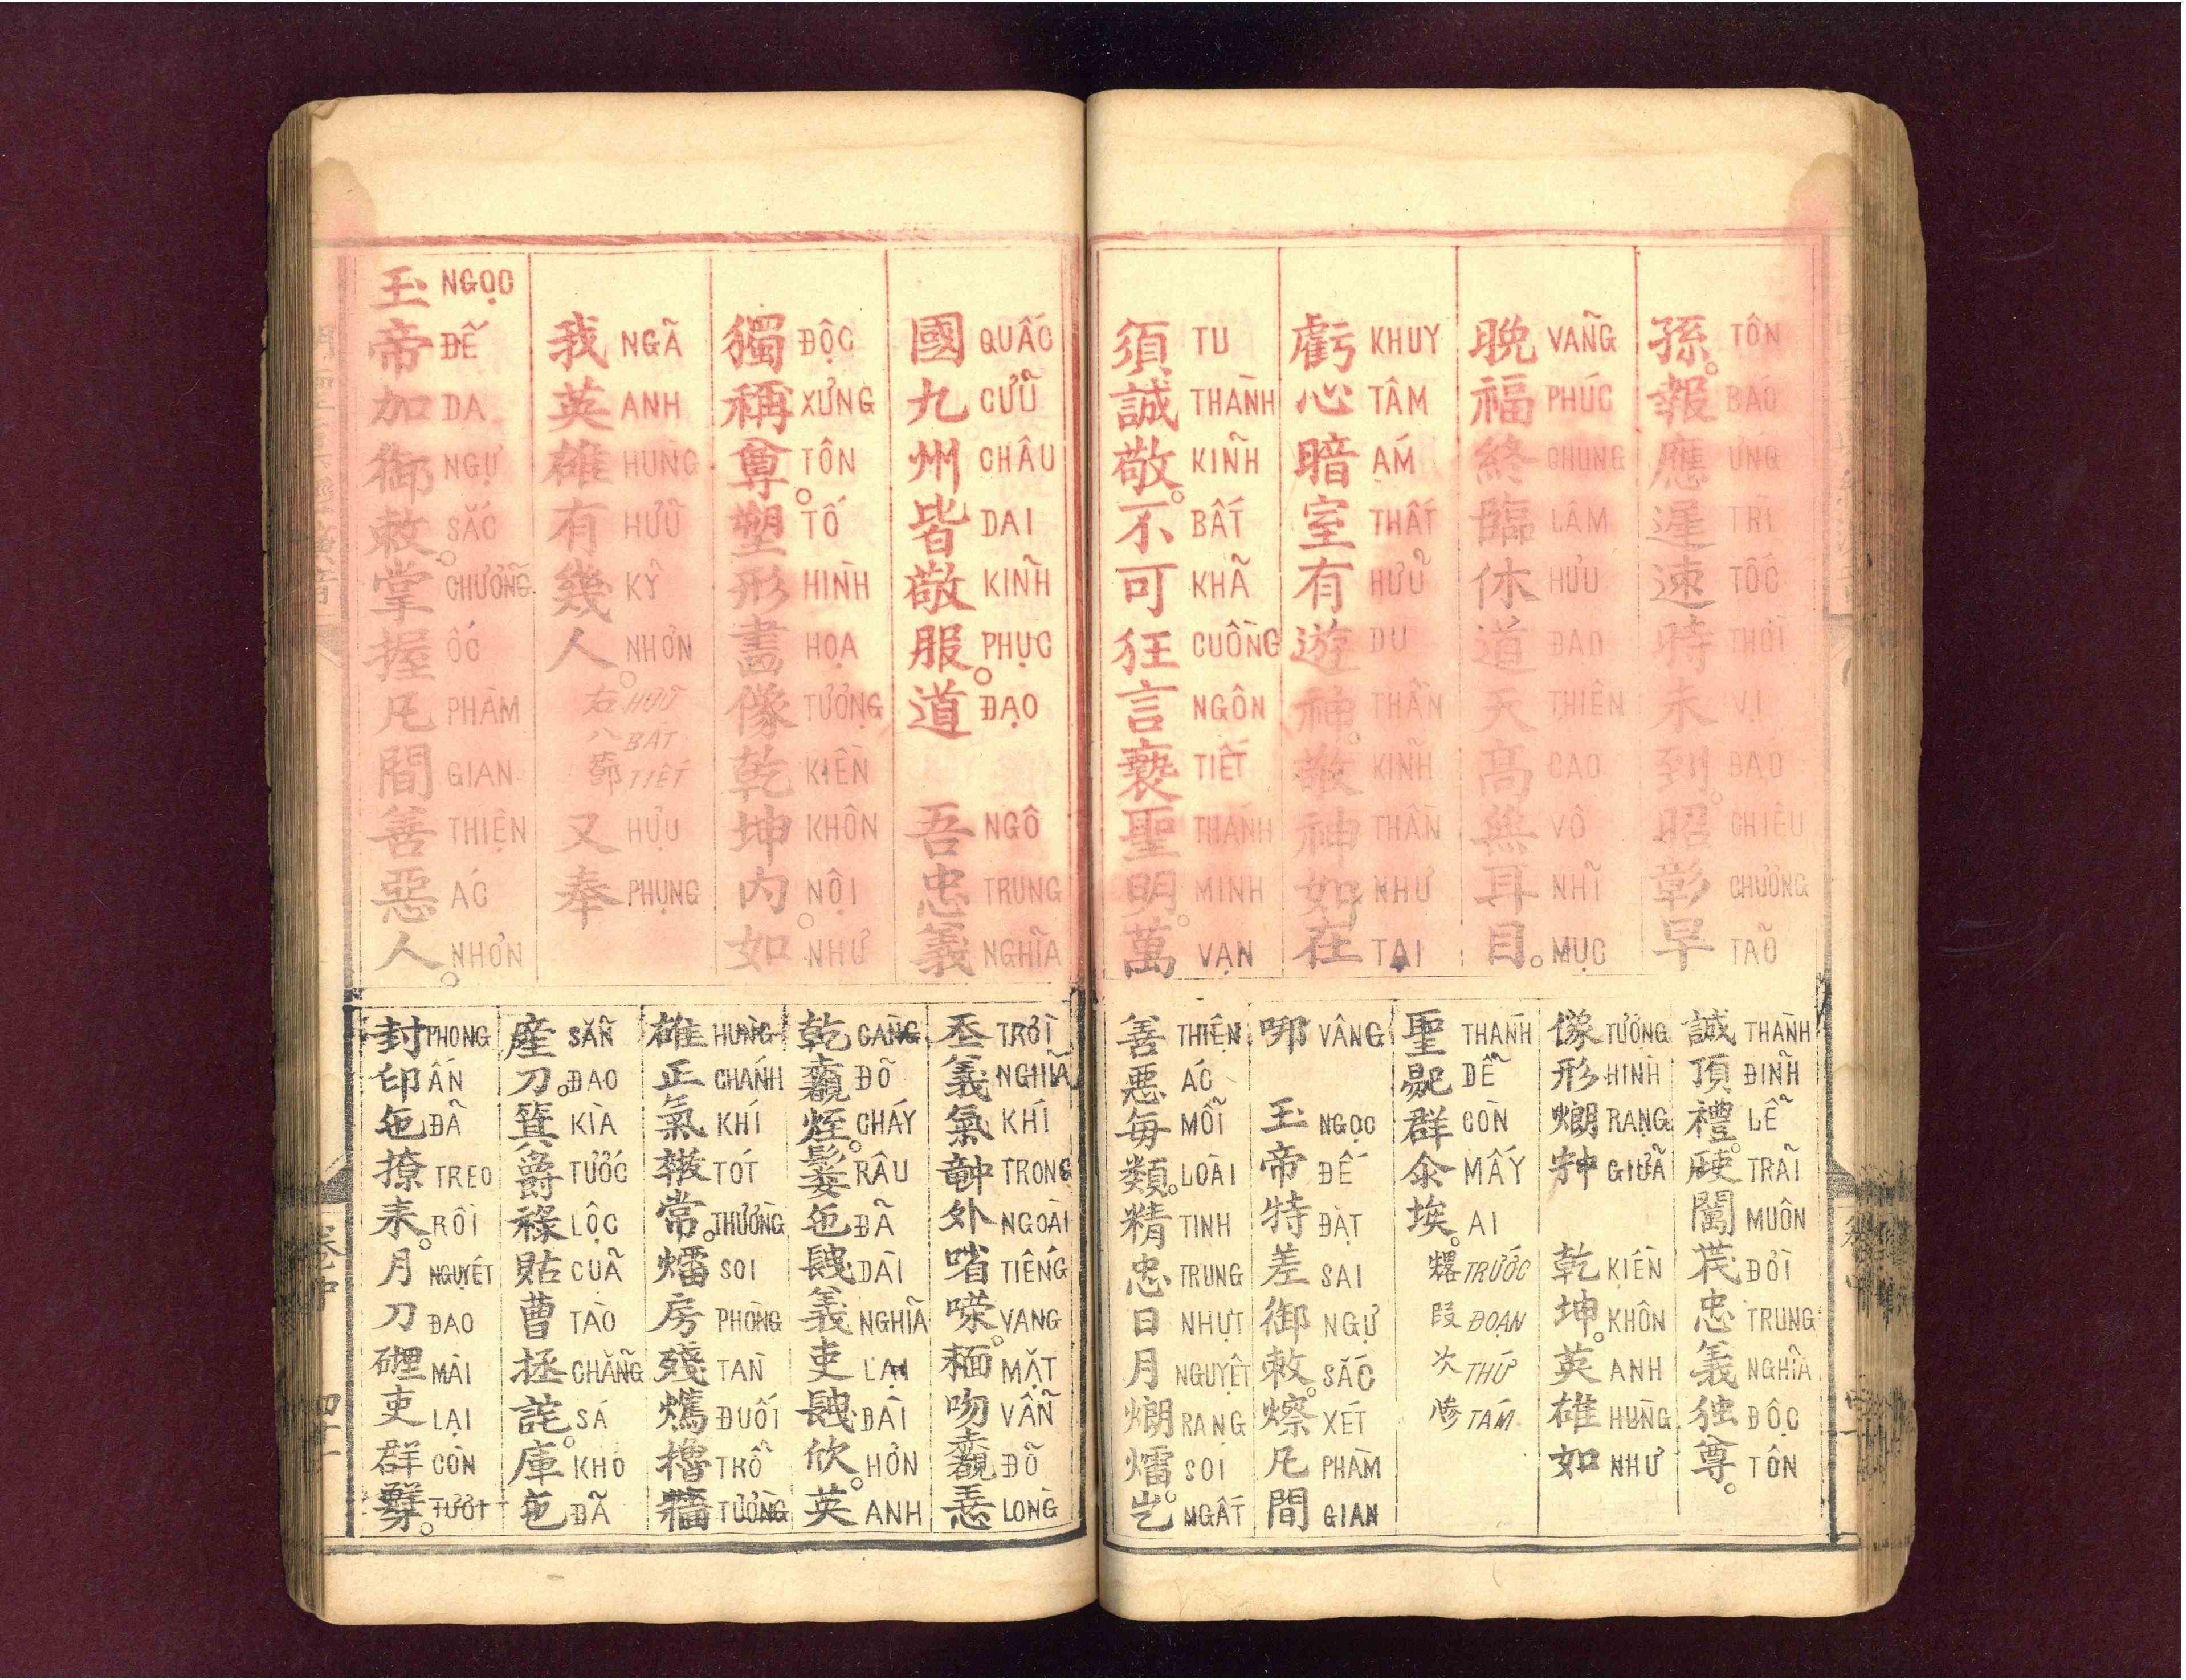 孫。報應遲速時未到。昭彰早
TÔN BÁO ỨNG TRÌ TỐC THỜI VỊ ĐÁO CHIÊU CHƯỞNG TAÕ
晚福終臨休道天高無耳目。
VAÑG PHÚC CHUNG LÂM HƯU ĐẠO THIÊN CAO VÔ NHĨ MỤC
虧心暗室有遊神。敬神如在
KHUY TÂM ÁM THẤT HƯỬ DU THẦN KIÑH THẦN NHƯ TẠI
須誠敬。不可狂言褻聖明。萬
TU THÀNH KIÑH BẤT KHÃ CUỒNG NGÔN TIẾT THÁNH MINH VẠN
誠頂禮。𢖕闖𠁀忠義独尊。
THÀNH ĐIÑH LỄ TRÃI MUÔN ĐỜI TRUNG NGHĨA ĐỘC TÔN
像形爛𡨌 乾坤。英雄如
TƯỢNG HÌNH RẠNG GIỮÃ KIỀN KHÔN ANH HÙNG NHƯ
聖帝群尒埃。
THÁNH ĐẾ CÒN MẤY AI TRƯỚC ĐOẠN THỨ TÁM
㖫 玉帝特差御敕。㷠凡間
VÂNG NGỌC ĐẾ ĐẶT SAI NGỰ SẮC XÉT PHÀM GIAN
善惡每類。精忠日月爛𤐝。屹
THIỆN ÁC MỖI LOÀI TINH TRUNG NHỰT NGUYỆT RẠNG SOI NGẤT
國九州皆敬服。道 吾忠義
QUẤC CỬŨ CHÂU DAI KIÑH PHỤC ĐẠO NGÔ TRUNG NGHĨA
獨稱尊。塑形畫像乾坤內。如
ĐỘC XƯNG TÔN TỐ HÌNH HỌA TƯỢNG KIỀN KHÔN NỘI NHƯ
我英雄有幾人。右八節 又奉
NGÃ ANH HÙNG HƯŨ KỶ NHƠN HƯŨ BÁT TIẾT HỰU PHỤNG
玉帝加御敕。掌握凡間善惡人。
NGỌC ĐẾ DA NGỰ SẮC CHƯỞNG ỐC PHÀM GIAN THIỆN ÁC NHƠN
𡗶義氣𥪝外㗂㘇。𩈘吻𧹼𢚸
TRỜI NGHĨA KHÍ TRONG NGOÀI TIẾNG VANG MẶT VẪN ĐÕ LÒNG
乾𧹼烴。𩯀㐌𨱽義吏𨱽欣。英
CÀNG ĐÕ CHÁY RÂU ĐÃ DÀI NGHĨA LẠI DÀI HƠN ANH
雄正氣𡄰常。𤐝房殘爊櫓牆
HÙNG CHÁNH KHÍ TÓT THƯỜNG SOI PHÒNG TÀN ĐUỐT TRỔ TƯỜNG
產刀。箕爵祿貼曹拯詫。庫㐌
SẴÑ ĐAO KÌA TƯỚC LỘC CUÃ TÀO CHẲÑG SÁ KHO ĐÃ
封印㐌撩耒。月刀𥖖吏群𦎛。
PHONG ẤN ĐÃ TREO RỒI NGUYẾT ĐAO MÀI LẠI CÒN TƯƠI
卷中
四十一